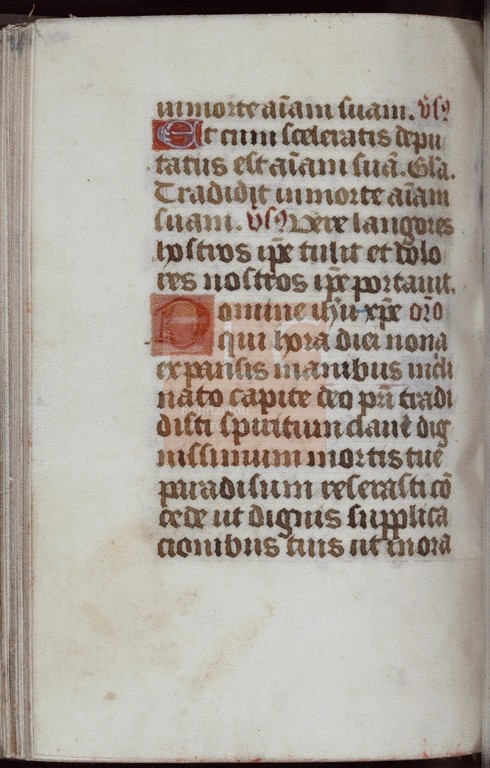 in morte aīam suam. v̄sꝰ
Et cum sceleratis depu
tatus est aīam suā. Gl̄a.
Tradidit in morte aīam
suam. v̄sꝰ Vere langores
nostros ip̄e tulit et dolo
res nostros ip̄e portauit.
Domine ih̄u xp̄e or̄o
qui hora diei nona
expansis manibus incli
nato capite deo pr̄i tradi
disti spiritum claue dig
nissimum mortis tue
paradisum reserasti cō
cede ut dignis supplica
cionibus tuis ut in ora